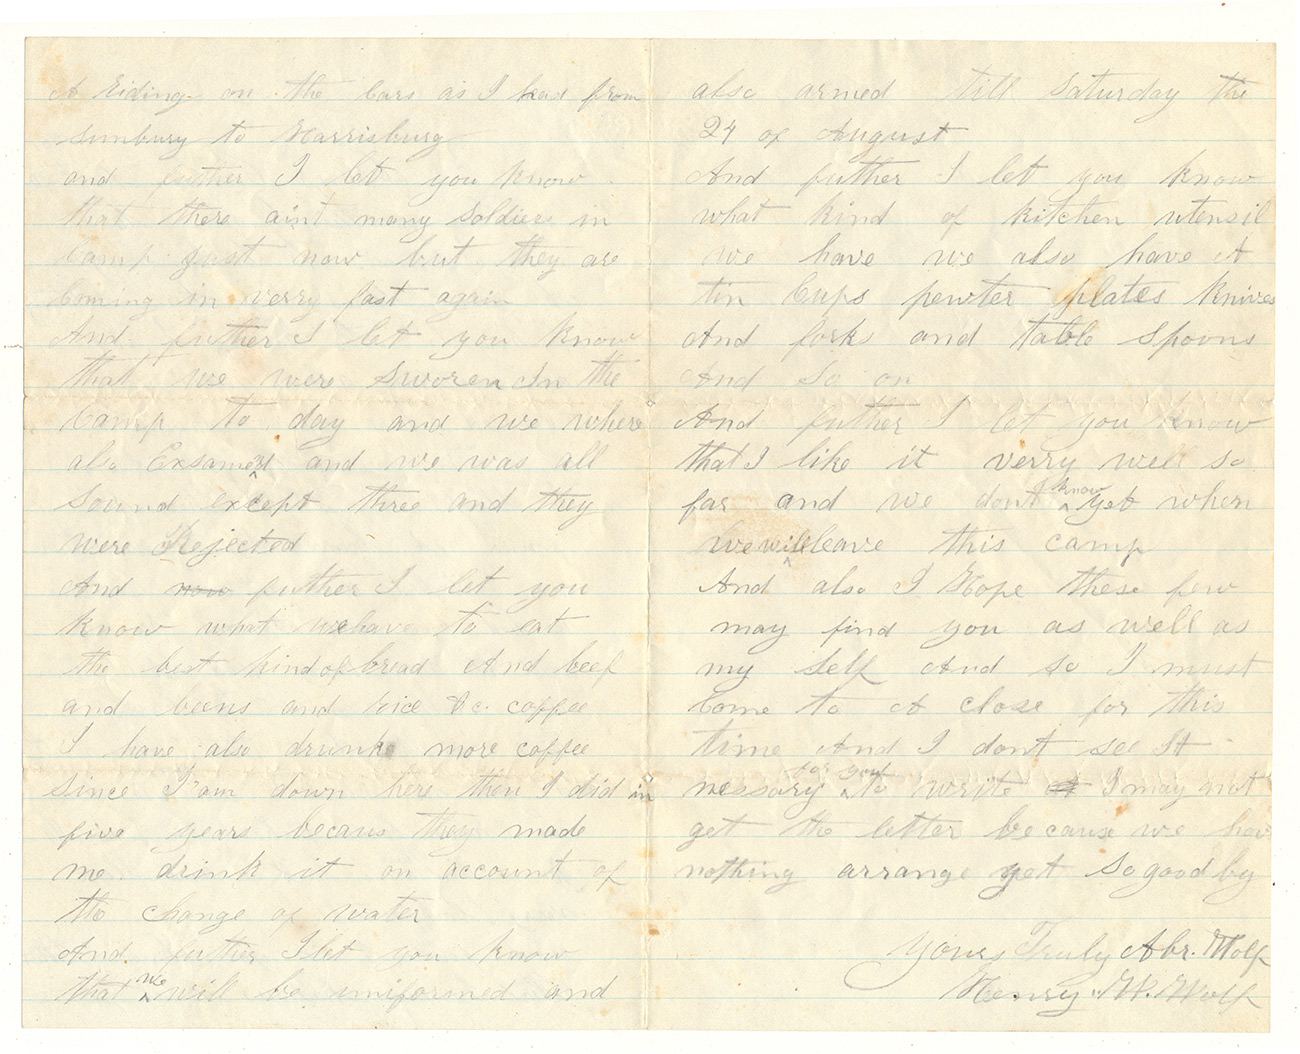 A Riding on the Cars as I had from
Sunbury to Harrisburg
and futher I let you know
that there aint many Soldiers in
Camp Just now but they are
Coming in verry fast again
And futher I let you know
that we were Sworen In the
Camp to day and we where
also Exsamend and we was all
Sound except three and they
were Rejected
And now futher I let you
know what we have to eat
the best kind of bread And beef
and beens and rice &c. coffee
I have also drunk more coffee
since I am down here then I did in
five years becaus they made
me drink it on account of
the change of water
And futher I let you know
that we will be uniformed and
also armed till Saturday the
24 of August
And futher I let you know
what kind of kitchen utensil
we have we also have A
tin Cups pewter plates knives
And forks and table Spoons
And So on
And futher I let you know
that I like it verry well so
far and we dont know yet when
we will leave this camp
And also I Hope these few
may find you as well as
my self And so I must
Come to A close for this
time And I dont see It
nessary for you to write I may not
get the letter because we have
nothing arrange yet So good by
Yours Truly Abr. Wolf
Henry W. Wolf